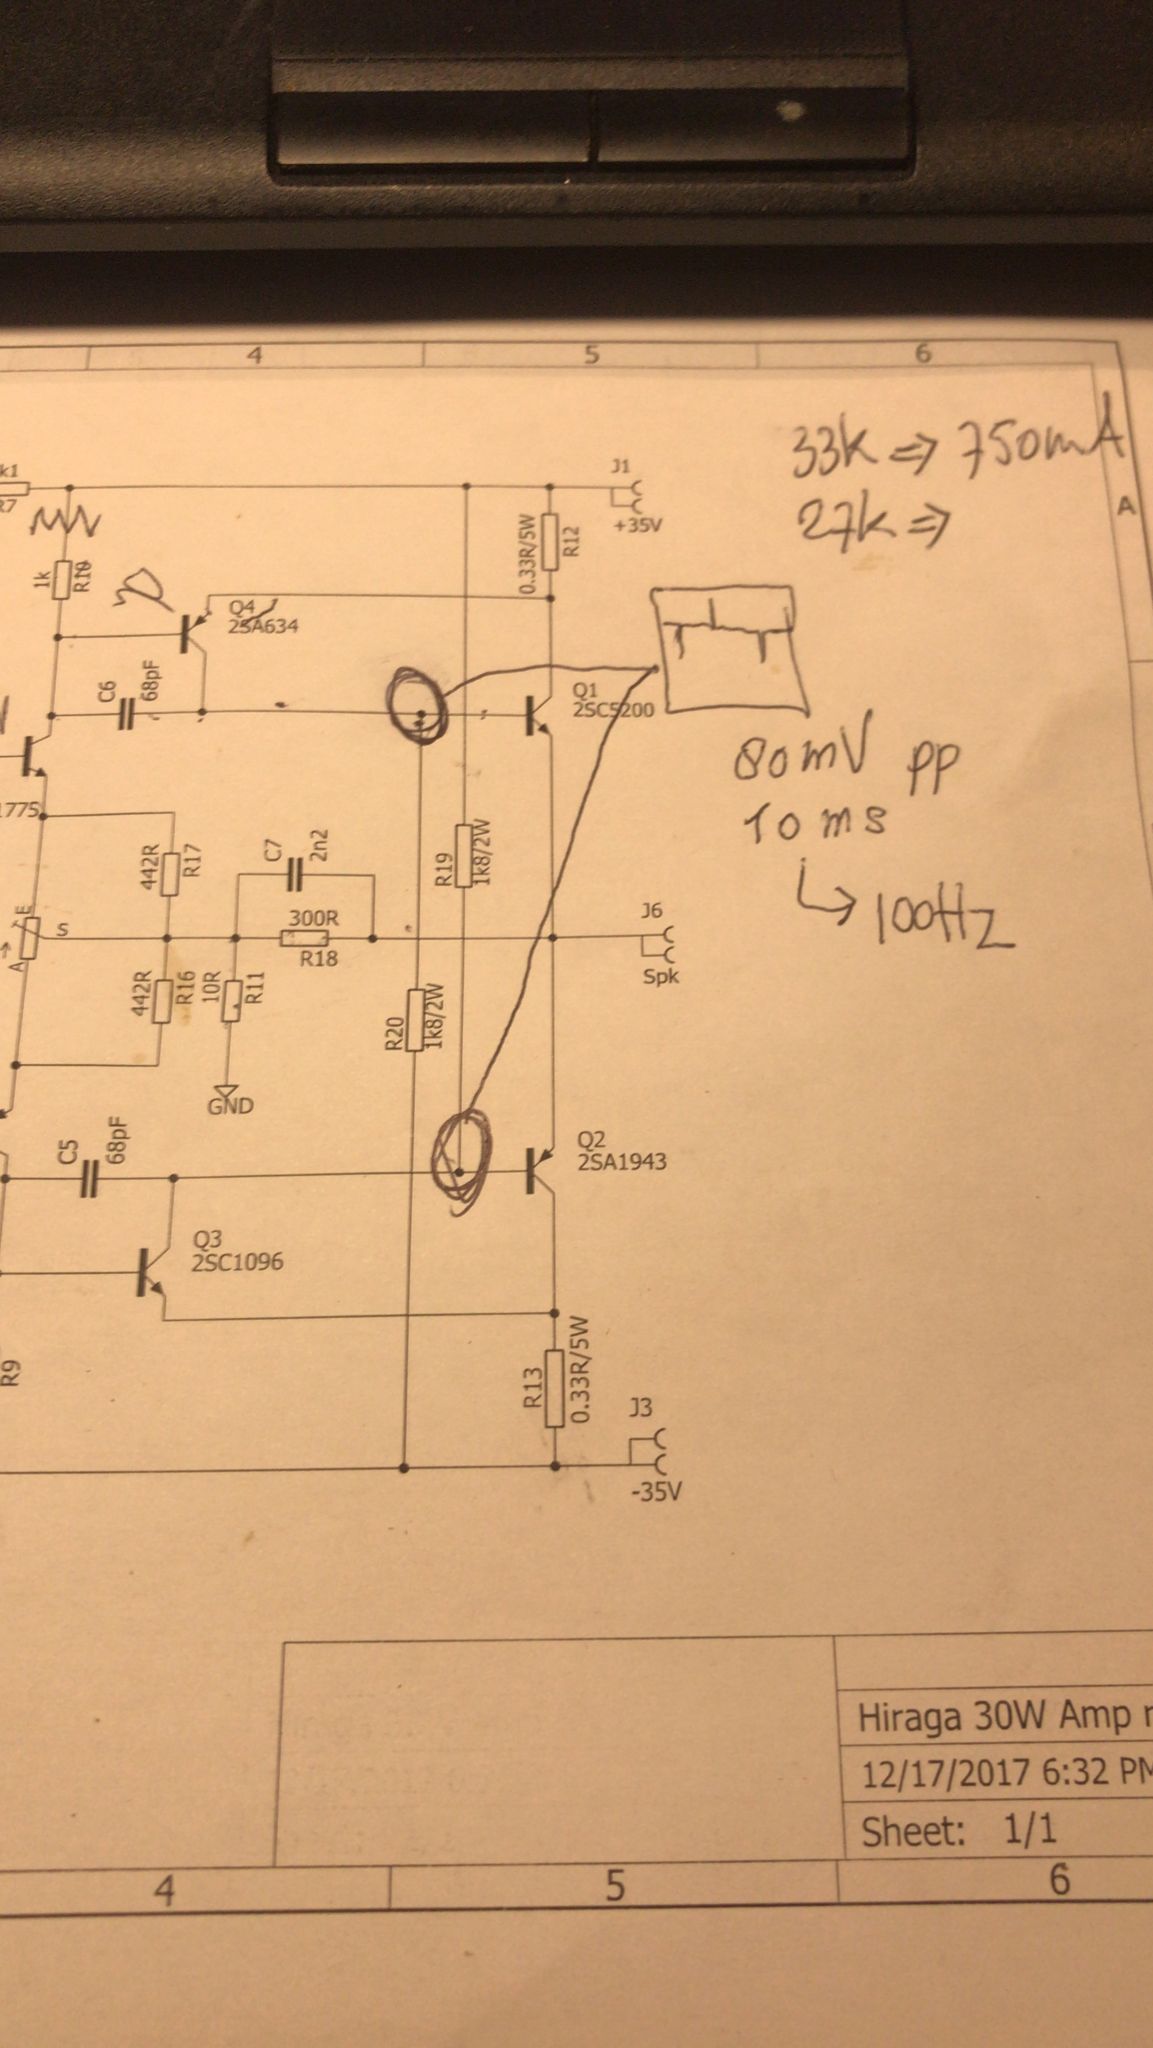 4 5 6
33k => 750mA
A
k1
R7
J1
+35V
27k =>
0.33R/5W
R12
1k
R10
Q4
2SA634
C6
68pF
Q1
2SC5200
80mV pp
10 ms
100Hz
1775
442R
R17
C7
2n2
R19
1k8/2W
E
S
A
300R
R18
J6
Spk
442R
R16
10R
R11
R20
1k8/2W
GND
C5
68pF
Q2
2SA1943
Q3
2SC1096
R9
R13
0.33R/5W
J3
-35V
Hiraga 30W Amp
12/17/2017 6:32 PM
Sheet: 1/1
4 5 6